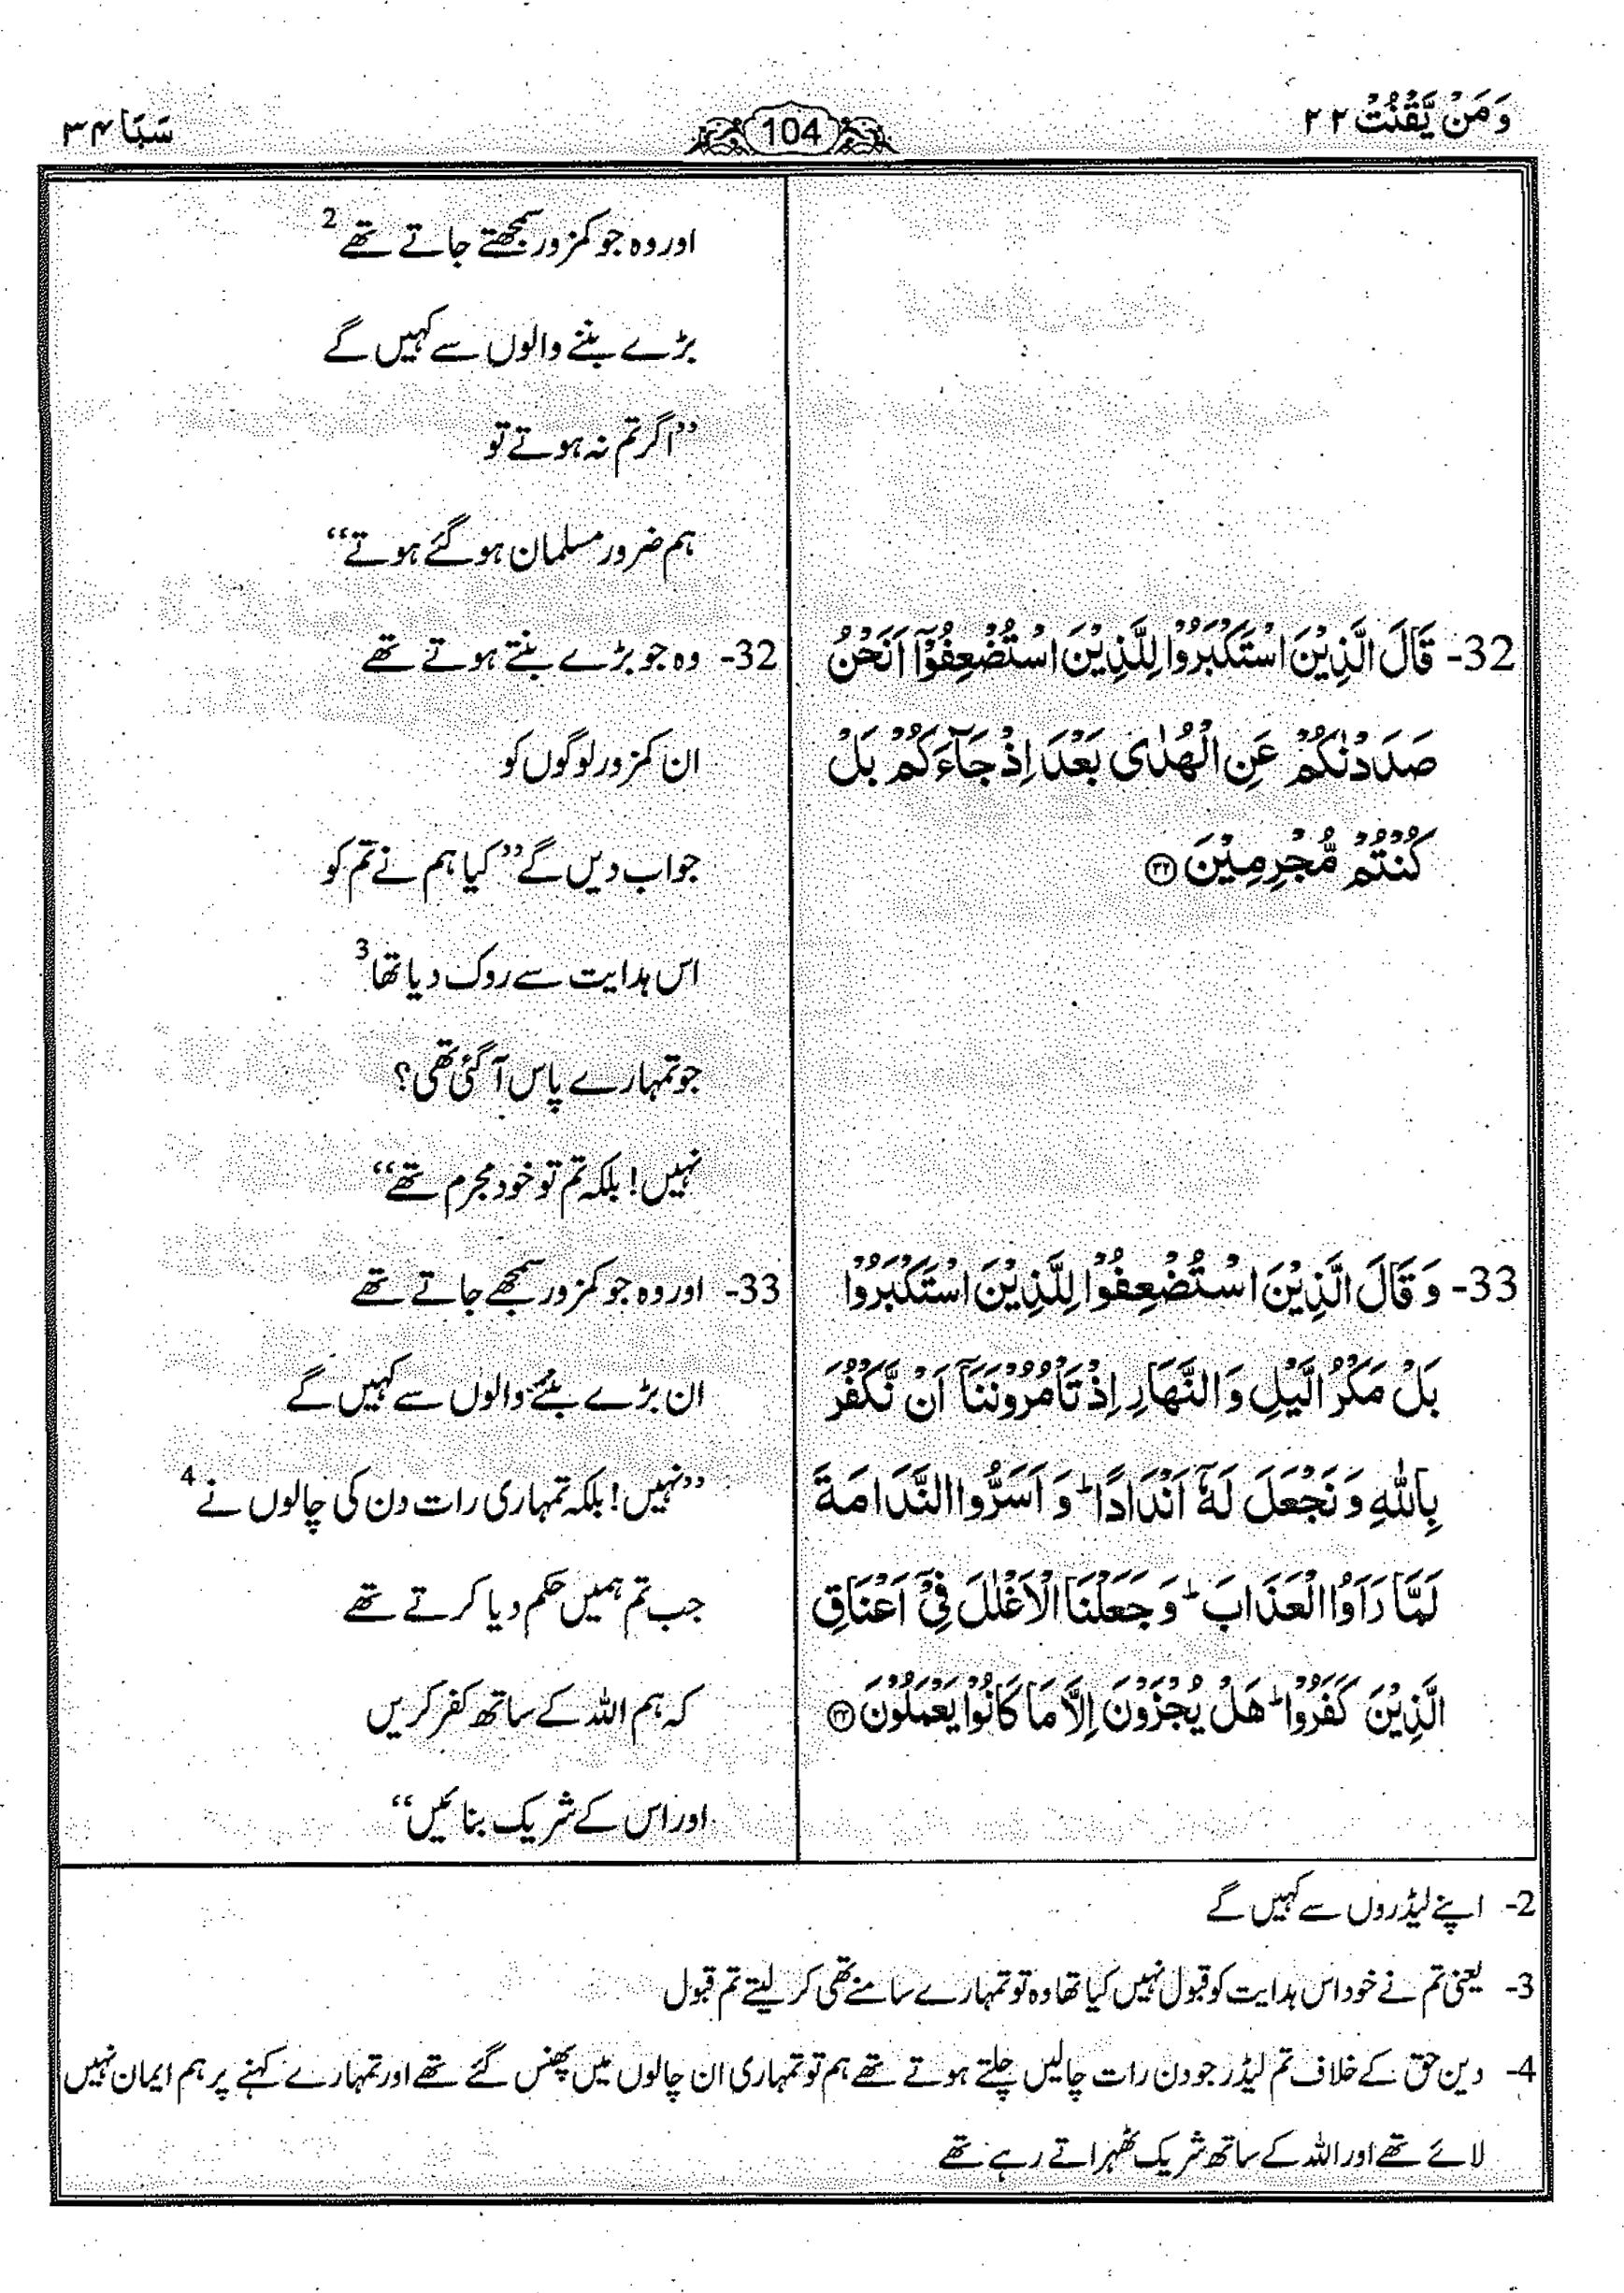 وَمَنْ يَّقْنُتْ ۲۲
104
سَبَا ۳۴
اور وہ جو کمزور سمجھتے جاتے تھے 2
بڑے بننے والوں سے کہیں گے
”اگر تم نہ ہوتے تو
ہم ضرور مسلمان ہو گئے ہوتے“
32- قَالَ الَّذِيْنَ اسْتَكْبَرُوْا لِلَّذِيْنَ اسْتُضْعِفُوْۤا اَنَحْنُ
صَدَدْنٰكُمْ عَنِ الْهُدٰى بَعْدَ اِذْ جَآءَكُمْ بَلْ
كُنْتُمْ مُّجْرِمِيْنَ ۳۲
32- وہ جو بڑے بنتے ہوتے تھے
ان کمزور لوگوں کو
جواب دیں گے ”کیا ہم نے تم کو
اس ہدایت سے روک دیا تھا 3
جو تمہارے پاس آ گئی تھی؟
نہیں! بلکہ تم تو خود مجرم تھے“
33- وَ قَالَ الَّذِيْنَ اسْتُضْعِفُوْا لِلَّذِيْنَ اسْتَكْبَرُوْا
بَلْ مَكْرُ الَّيْلِ وَ النَّهَارِ اِذْ تَاْمُرُوْنَنَاۤ اَنْ نَّكْفُرَ
بِاللّٰهِ وَ نَجْعَلَ لَهٗۤ اَنْدَادًا ؕ وَ اَسَرُّوا النَّدَامَةَ
لَمَّا رَاَوُا الْعَذَابَ ؕ وَ جَعَلْنَا الْاَغْلٰلَ فِيْۤ اَعْنَاقِ
الَّذِيْنَ كَفَرُوْا ؕ هَلْ يُجْزَوْنَ اِلَّا مَا كَانُوْا يَعْمَلُوْنَ ۳۳
33- اور وہ جو کمزور سمجھے جاتے تھے
ان بڑے بننے والوں سے کہیں گے
”نہیں! بلکہ تمہاری رات دن کی چالوں نے 4
جب تم ہمیں حکم دیا کرتے تھے
کہ ہم اللہ کے ساتھ کفر کریں
اور اس کے شریک بنائیں“
2- اپنے لیڈروں سے کہیں گے
3- یعنی تم نے خود اس ہدایت کو قبول نہیں کیا تھا وہ تو تمہارے سامنے تھی کر لیتے تم قبول
4- دین حق کے خلاف تم لیڈر جو دن رات چالیں چلتے ہوتے تھے ہم تو تمہاری ان چالوں میں پھنس گئے تھے اور تمہارے کہنے پر ہم ایمان نہیں
لائے تھے اور اللہ کے ساتھ شریک ٹھہراتے رہے تھے